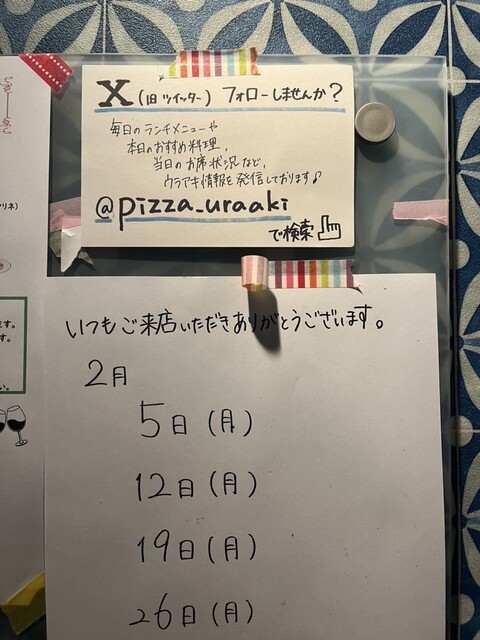 X (旧ツイッター) フォローしませんか?
毎日のランチメニューや
本日のおすすめ料理、
当日のお席状況など、
ウラアキ情報を発信しております♪
@pizza_uraaki
で検索
いつもご来店いただきありがとうございます。
2月
5日(月)
12日(月)
19日(月)
26日(月)
リネ)
ます。
す。
い。